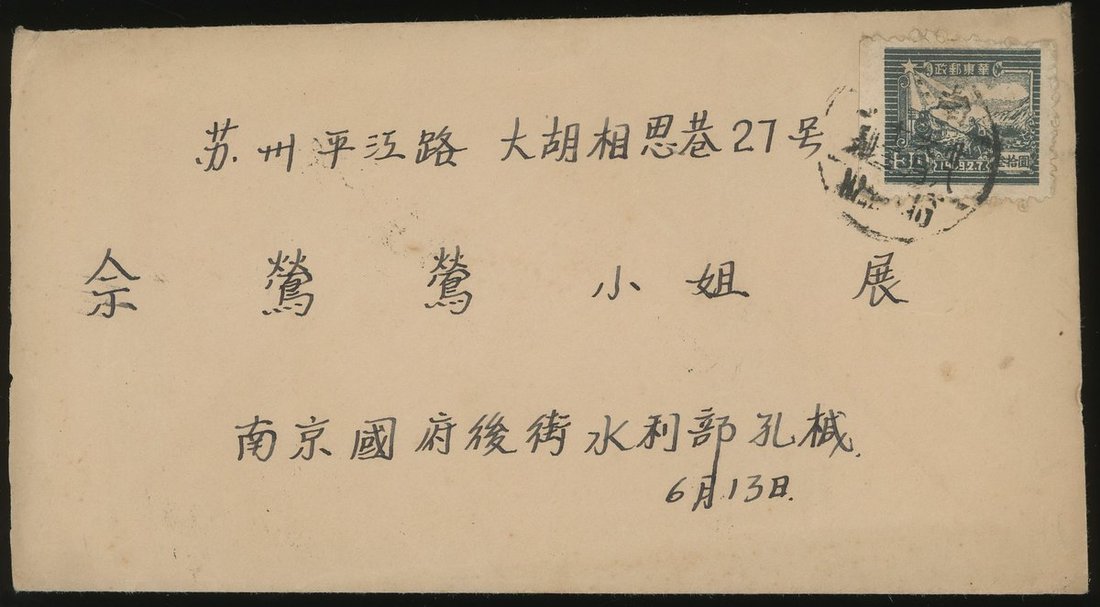 華東郵政
30
1949.2.7
叁拾圓
苏州平江路 大胡相思巷27号
佘鶯鶯小姐 展
南京國府後街水利部孔棫.
6月13日.